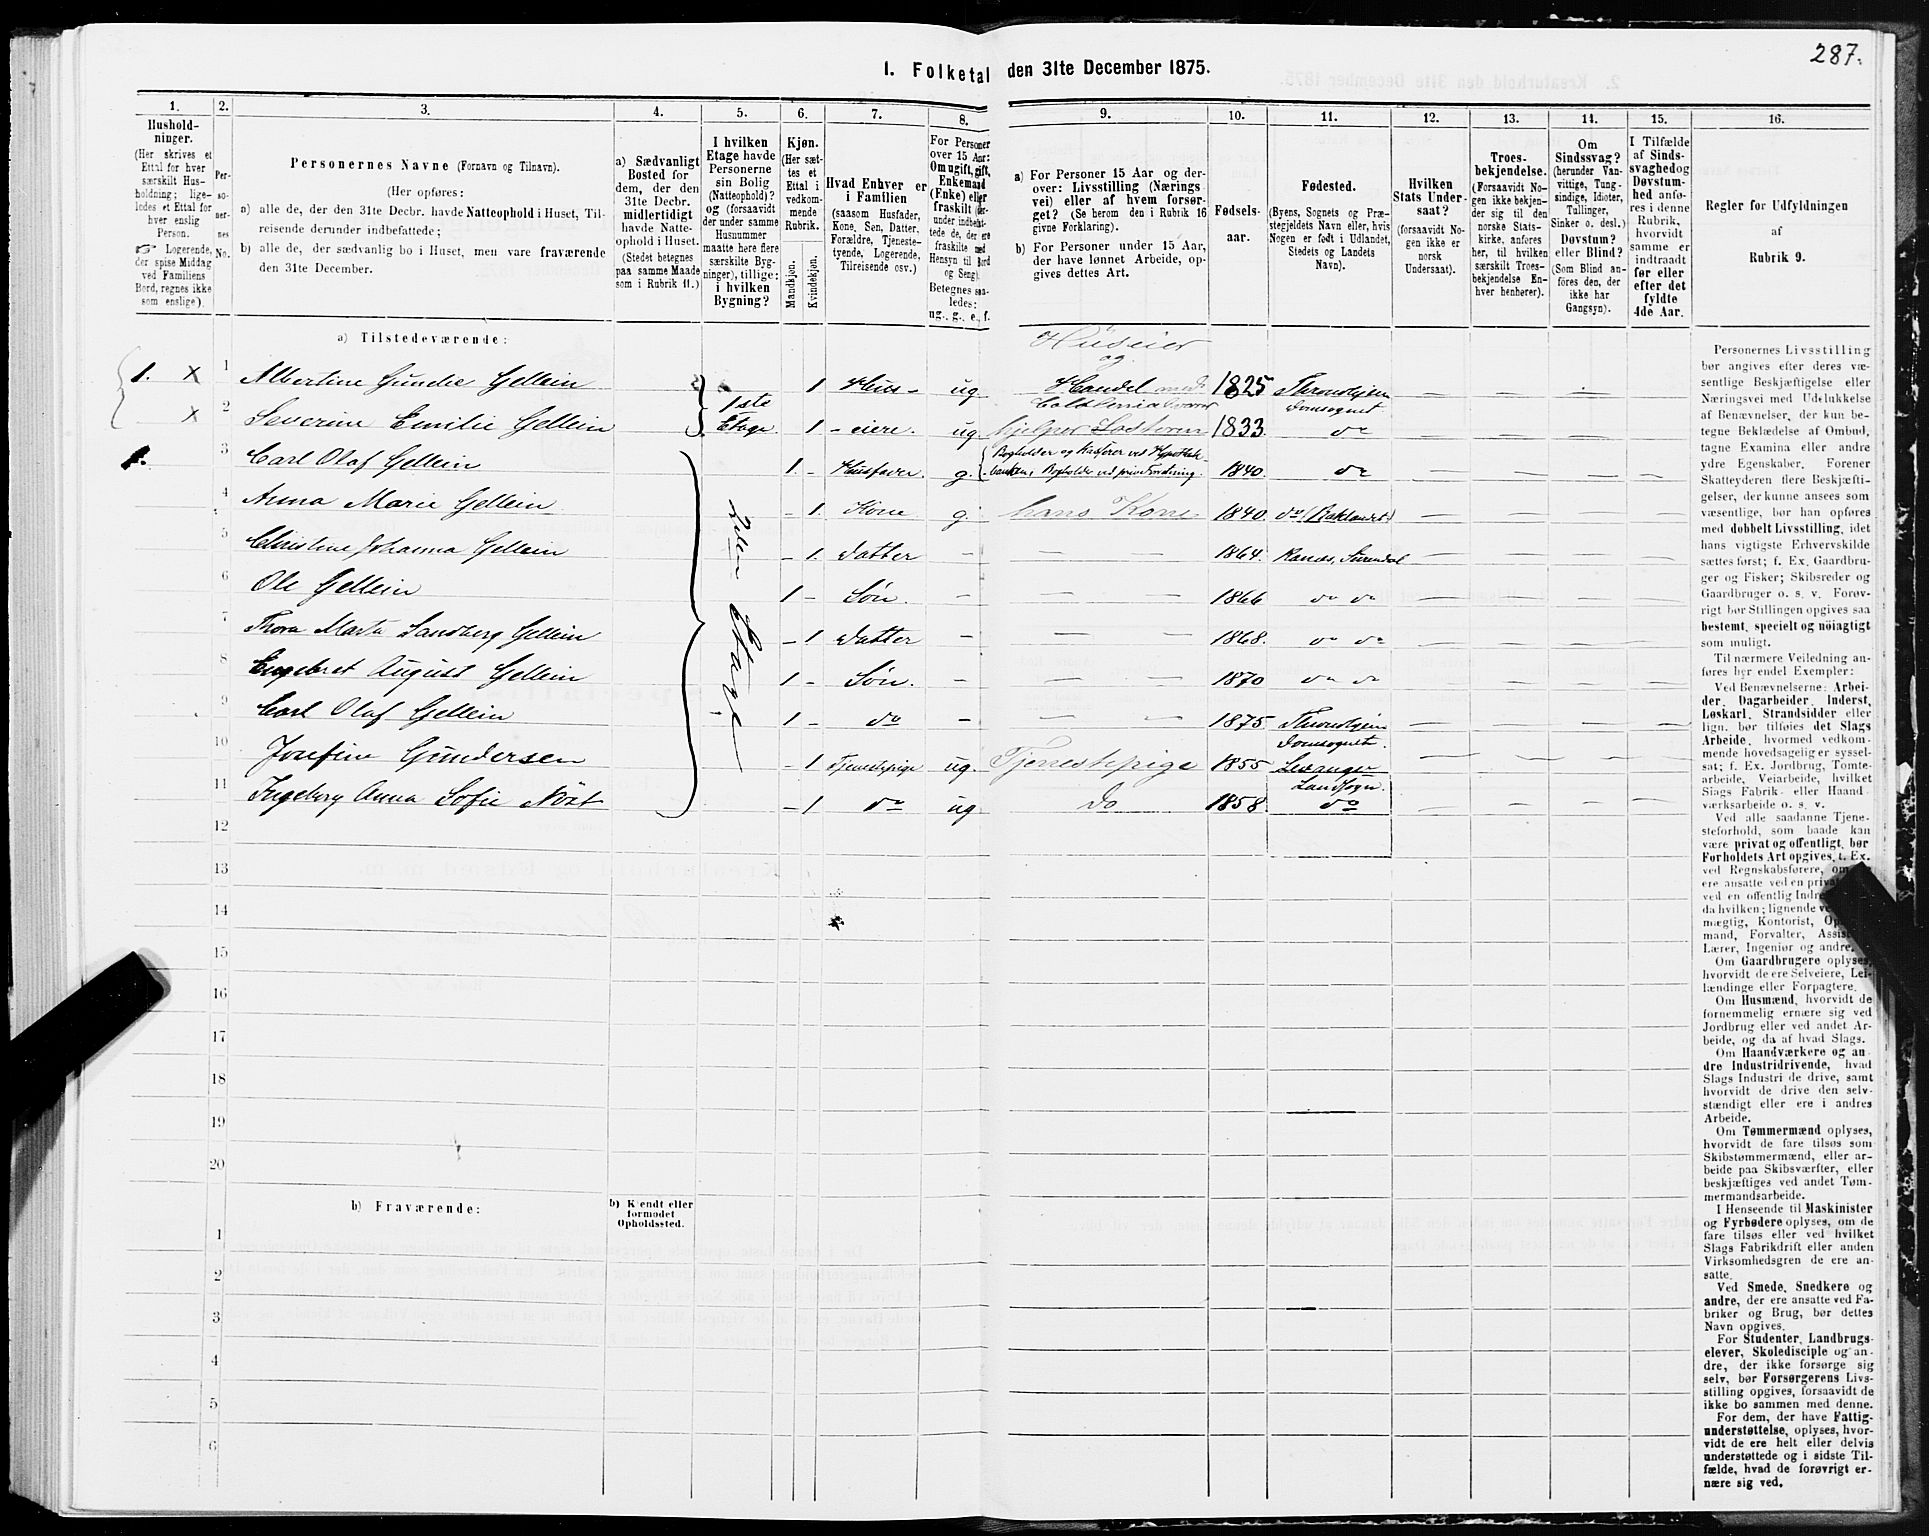 287.
1. Folketal den 31te December 1875.
1.
Hushold-
ninger.
(Her skrives et
Ettal for hver
særskilt Hus-
holdning; lige-
ledes et Ettal for
hver enslig
Person.
☞ Logerende,
der spise Middag
ved Familiens
Bord, regnes ikke
som enslige).
2.
Per-
so-
ner-
nes
No.
3.
Personernes Navne (Fornavn og Tilnavn).
(Her opføres:
a) alle de, der den 31te Decbr. havde Natteophold i Huset, Til-
reisende derunder indbefattede;
b) alle de, der sædvanlig bo i Huset, men vare fraværende
den 31te December.
4.
a) Sædvanligt
Bosted for
dem, der den
31te Decbr.
midlertidigt
havde Natte-
ophold i Huset.
(Stedet betegnes
paa samme Maade
som i Rubrik 11.)
5.
I hvilken
Etage havde
Personerne
sin Bolig
(Natteophold)?
og (forsaavidt
der under samme
Husnummer
maatte være flere
særskilte Byg-
ninger), tillige:
i hvilken
Bygning?
6.
Kjøn.
(Her sæt-
tes et
Ettal i
vedkom-
mende
Rubrik.
Mandkjøn.
Kvindekjøn.
7.
Hvad Enhver er
i Familien
(saasom Husfader,
Kone, Søn, Datter,
Forældre, Tjeneste-
tyende, Logerende,
Tilreisende osv.)
8.
For Personer
over 15 Aar:
Om ugift, gift,
Enkemand
(Enke) eller
fraskilt (der-
under indbefat-
tede de, der ere
fraskilte med
Hensyn til Bord
og Seng).
Betegnes saa-
ledes:
ug., g., e., f.
9.
a) For Personer 15 Aar og der-
over: Livsstilling (Nærings
vei) eller af hvem forsør-
get? (Se herom den i Rubrik 16
givne Forklaring).
b) For Personer under 15 Aar,
der have lønnet Arbeide, op-
gives dettes Art.
10.
Fødsels-
aar.
11.
Fødested.
(Byens, Sognets og Præ-
stegjeldets Navn eller, hvis
Nogen er født i Udlandet,
Stedets og Landets
Navn).
12.
Hvilken
Stats Under-
saat?
(forsaavidt No-
gen ikke er
norsk
Undersaat).
13.
Troes-
bekjendelse.
(Forsaavidt No-
gen ikke bekjen-
der sig til den
norske Stats-
kirke, anføres
her, til hvilken
særskilt Troes-
bekjendelse En-
hver henhører).
14.
Om
Sindssvag?
(herunder Van-
vittige, Tung-
sindige, Idioter,
Tullinger,
Sinker o. desl.)
Døvstum?
eller Blind?
(Som Blind an-
føres den, der
ikke har
Gangsyn).
15.
I Tilfælde
af Sinds-
svaghed og
Døvstum-
hed anfø-
res i denne
Rubrik,
hvorvidt
samme er
indtraadt
før eller
efter det
fyldte
4de Aar.
16.
Regler for Udfyldningen
af
Rubrik 9.
a) Tilstedeværende:
Huseier
og
1. x 1 Albertine Gundie Gellein 1ste 1 Hus- ug Handel med 1825 Thronhjem
x 2 Severine Emilie Gellein Etage. 1 -eiere. ug hjelper Søsteren 1833. Domsognet do
1. 3 Carl Olaf Gellein 1 - Husfader. g. Bogholder og Kasserer ved Hypothek-
banken, Bogholder ved priv. Forretning. 1840. do
4 Anna Marie Gellein - 1. Kone g. hans Kone 1840. do (Baklandet)
5 Christine Johanna Gellein - 1. Datter - - 1864. Ranæs, Surendal
6 Ole Gellein 1 - Søn. - 1866 do do
7 Thora Marta Sandberg Gellein - 1 Datter - - 1868. do do
8 Engebret August Gellein 1 - Søn. - - 1870 do do
9 Carl Olaf Gellein 1 - do - - 1875. Thronhjem
Domsognet.
10 Josefine Gundersen - 1 Tjenestepige ug. Tjenestepige 1855 Levanger
Landsogn.
11 Ingeborg Anna Sofie Nøst - 1 do ug do 1858. do
12
13
14
15
16
17
18
19
20
b) Fraværende:
b) Kjendt eller
formodet
Opholdssted.
1
2
3
4
5
6
Personernes Livsstilling
bør angives efter deres væ-
sentlige Beskjæftigelse eller
Næringsvei med Udelukkelse
af Benævnelser, der kun be-
tegne Beklædelse af Ombud,
tagne Examina eller andre
ydre Egenskaber. Forener
Skatteyderen flere Beskjæfti-
gelser, der kunne ansees som
væsentlige, bør han opføres
med dobbelt Livsstilling, idet
hans vigtigste Erhvervskilde
sættes først; f. Ex. Gaardbru-
ger og Fisker; Skibsreder og
Gaardbruger o. s. v. Forøv-
rigt bør Stillingen opgives saa
bestemt, specielt og nöiagtigt
som muligt.
Til nærmere Veiledning an-
føres her endel Exempler:
Ved Benævnelserne: Arbei-
der, Dagarbeider, Inderst,
Løskarl, Strandsidder eller
lign. bør tilføies det Slags
Arbeide, hvormed vedkom-
mende hovedsagelig er syssel-
sat; f. Ex. Jordbrug, Tomte-
arbeide, Veiarbeide, hvilket
Slags Fabrik- eller Haand-
værksarbeide o. s. v.
Ved alle saadanne Tjene-
steforhold, som baade kan
være privat og offentligt, bør
Forholdets Art opgives, t. Ex.
ved Regnskabsførere, om
ere ansatte ved en privat
ved en offentlig Indre
da hvilken; lignende ve
mægtig, Kontorist, Op
mand, Forvalter, Assist
Lærer, Ingeniør og andre.
Om Gaardbrugere oplyses,
hvorvidt de ere Selveiere, Lei-
lændinge eller Forpagtere.
Om Husmænd, hvorvidt de
fornemmelig ernære sig ved
Jordbrug eller ved andet Ar-
beide, og da af hvad Slags.
Om Haandværkere og an-
dre Industridrivende, hvad
Slags Industri de drive, samt
hvorvidt de drive den selv-
stændigt eller ere i andres
Arbeide.
Om Tømmermænd oplyses,
hvorvidt de fare tilsøs som
Skibstømmermænd, eller ar-
beide paa Skibsværfter, eller
beskjæftiges ved andet Tøm-
mermandsarbeide.
I Henseende til Maskinister
og Fyrbødere oplyses, om de
fare tilsøs eller ved hvilket
Slags Fabrikdrift eller anden
Virksomhedsgren de ere an-
satte.
Ved Smede, Snedkere og
andre, der ere ansatte ved Fa-
briker og Brug, bør dettes
Navn opgives.
For Studenter, Landbrugs-
elever, Skoledisciple og an-
dre, der ikke forsørge sig
selv, bør Forsørgerens Livs-
stilling opgives, forsaavidt de
ikke bo sammen med denne.
For dem, der have Fattig-
understøttelse, oplyses, hvor-
vidt de ere helt eller delvis
understøttede og i sidste Til-
fælde, hvad de forøvrigt er-
nære sig ved.